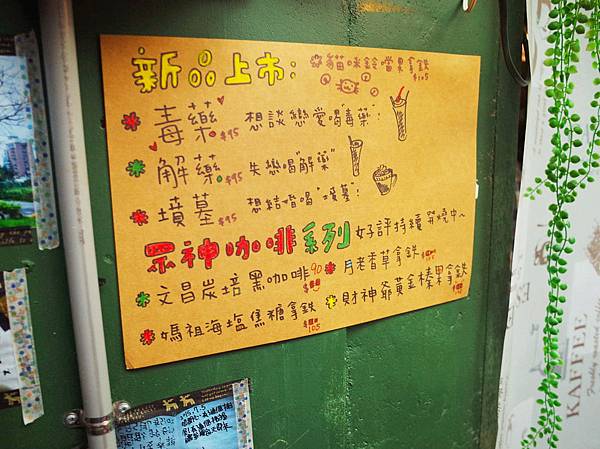 新品上市:
貓咪鈴噹果拿鐵
$105
毒藥 $95 想談戀愛喝"毒藥"!
解藥 $95 失戀喝"解藥"!
墳墓 $95 想結婚喝"墳墓"!
眾神咖啡系列 好評持續開燒中~
文昌炭培黑咖啡 90
月老香草拿鐵
媽祖海塩焦糖拿鐵 105
財神爺黃金榛果拿鐵
KAFFEE